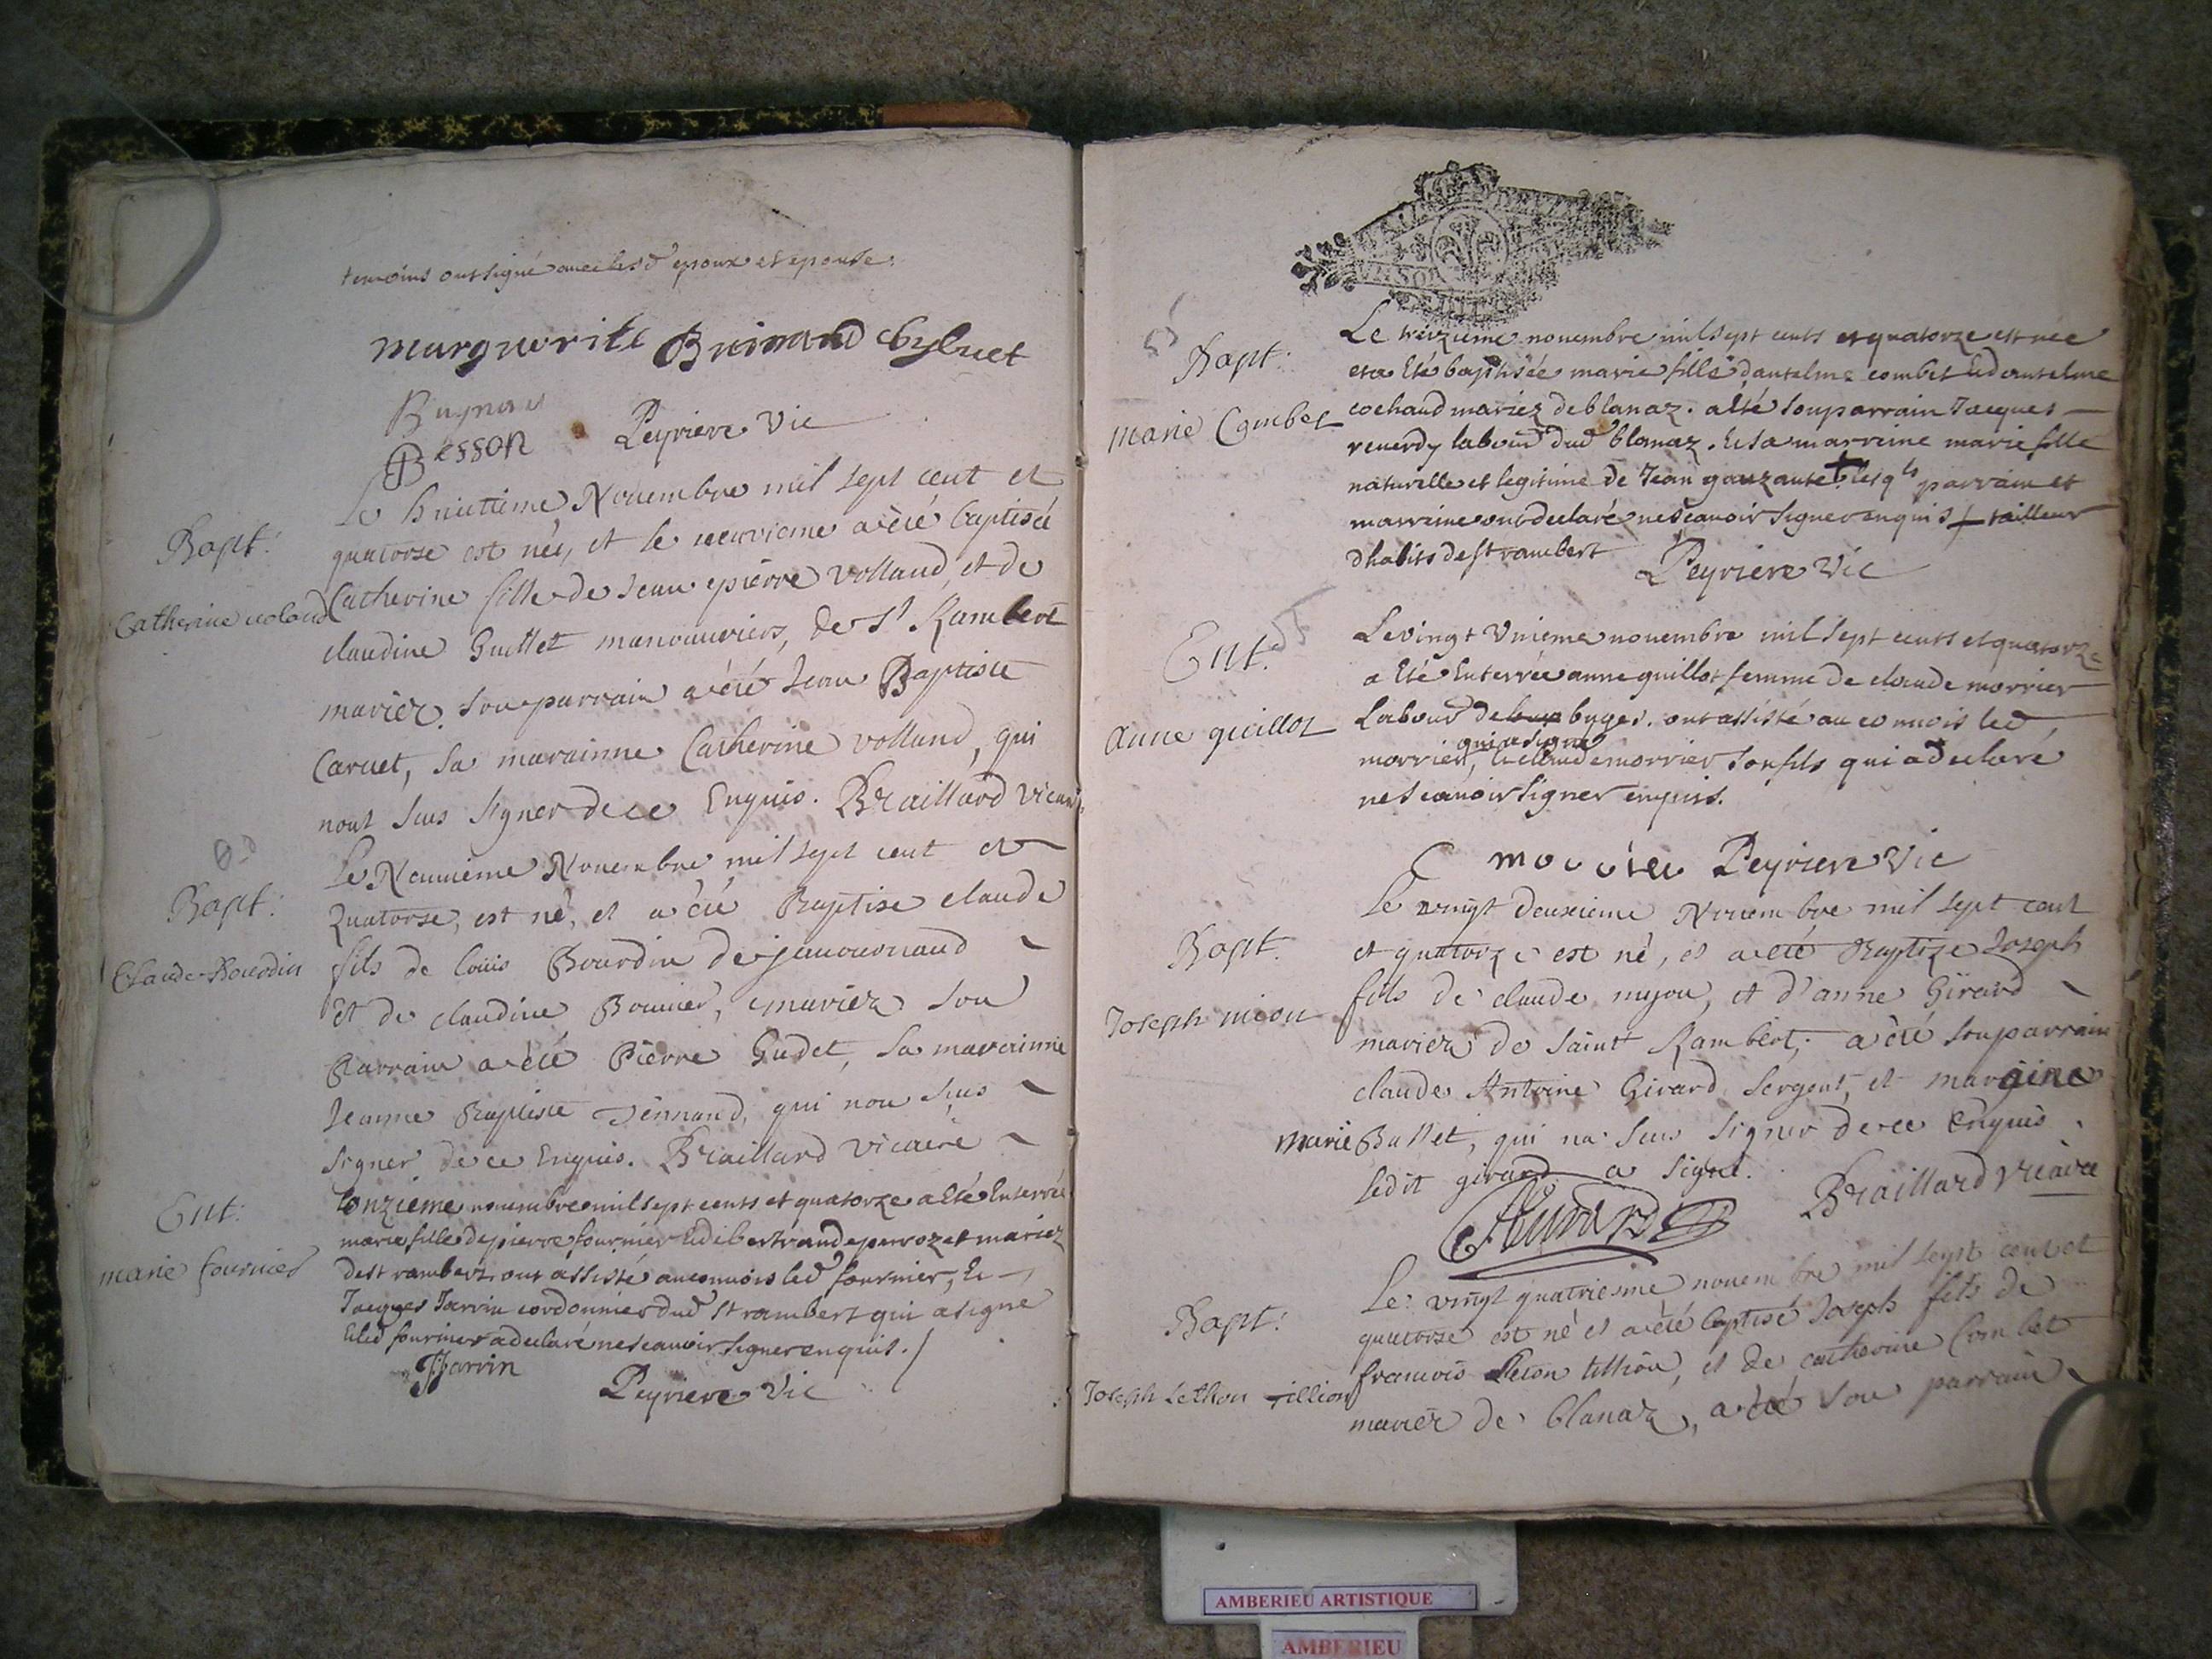 temoins ont signé avec lesd epoux et epouse.
marguerite Brirand
Besson Peyriere Vic
Bapt:
Catherine volond
Le huittieme Novembre mil sept cent et
quatorse est née, et le neuvieme a été baptisée
Catherine fille de Jean pierre Volland, et de
claudine Guillet manouuriers, de St Rambert
mariez. son parrain a été Jean Baptiste
Caruet, sa marainne Catherine volland, qui
nont sus signer de ce Enquis. Braillard Vicaire
Bapt:
Claude Bourdin
Le Neuuieme Nouembre mil sept cent et
Quatorse, est né, et a été Baptise claude
fils de louis Bourdin de
Et de claudine Bouuier, mariez son
Parrain a été Pierre Gudet, sa marainne
Jeanne Baptiste qui non sus
signer de ce Enquis. Braillard Vicaire
Ent:
marie fournier
Lonzieme nouembre mil sept cents et quatorze a été Enterrée
marie fille de pierre fournier Et dibertrande perrozet mariez
de st rambert. ont assisté au conuois led fournier, Et
Jacques Jarvin cordonnier dud st rambert qui a signé
Et led fournier a declaré ne scauoir signer enquis.
JJarvin
Peyriere Vic
Bapt:
Marie Combet
Le treizieme nouembre mil sept cents et quatorze est née
et a Eté baptisée marie fille dantelme combet Et dantelme
cochaud mariez de blanaz. a été son parrain Jacques
reuerdy labour dud blanaz. Et sa marrine marie fille
naturelle et legitime de Jean gouzaute + lesqls parrain et
marrine ont declaré ne scauoir signer enquis + tailleur
dhabits de st rambert
Peyriere Vic
Ent.
anne guillot
Le vingt Vnieme nouembre mil sept cents et quatorze
a Eté Enterrée anne guillot femme de claude morrier
Labour de buges. ont assisté au conuois led
qui a signé
morrier, Et claude morrier son fils qui a declaré
ne scauoir signer enquis.
C Peyriere Vic
Bapt.
Joseph mion
Le vingt deuxieme Nouembre mil sept cent
et quatorze est né, et a été Baptize Joseph
fils de claude myon, et d'anne Girard
mariez de saint Rambert, a été son parrain
claude Antoine Girard sergent, et maraine
marie Ballet, qui na sus signer de ce Enquis
ledit girard a signé.
Braillard Vicaire
Bapt:
Joseph Lethon Tillion
Le vingt quatriesme nouembre mil sept cent et
quatorse est né et a été baptisé Joseph fils de
francois Leton tillion, et de catherine Combet
mariez de blanaz, a été son parrain
AMBERIEU ARTISTIQUE
AMBERIEU